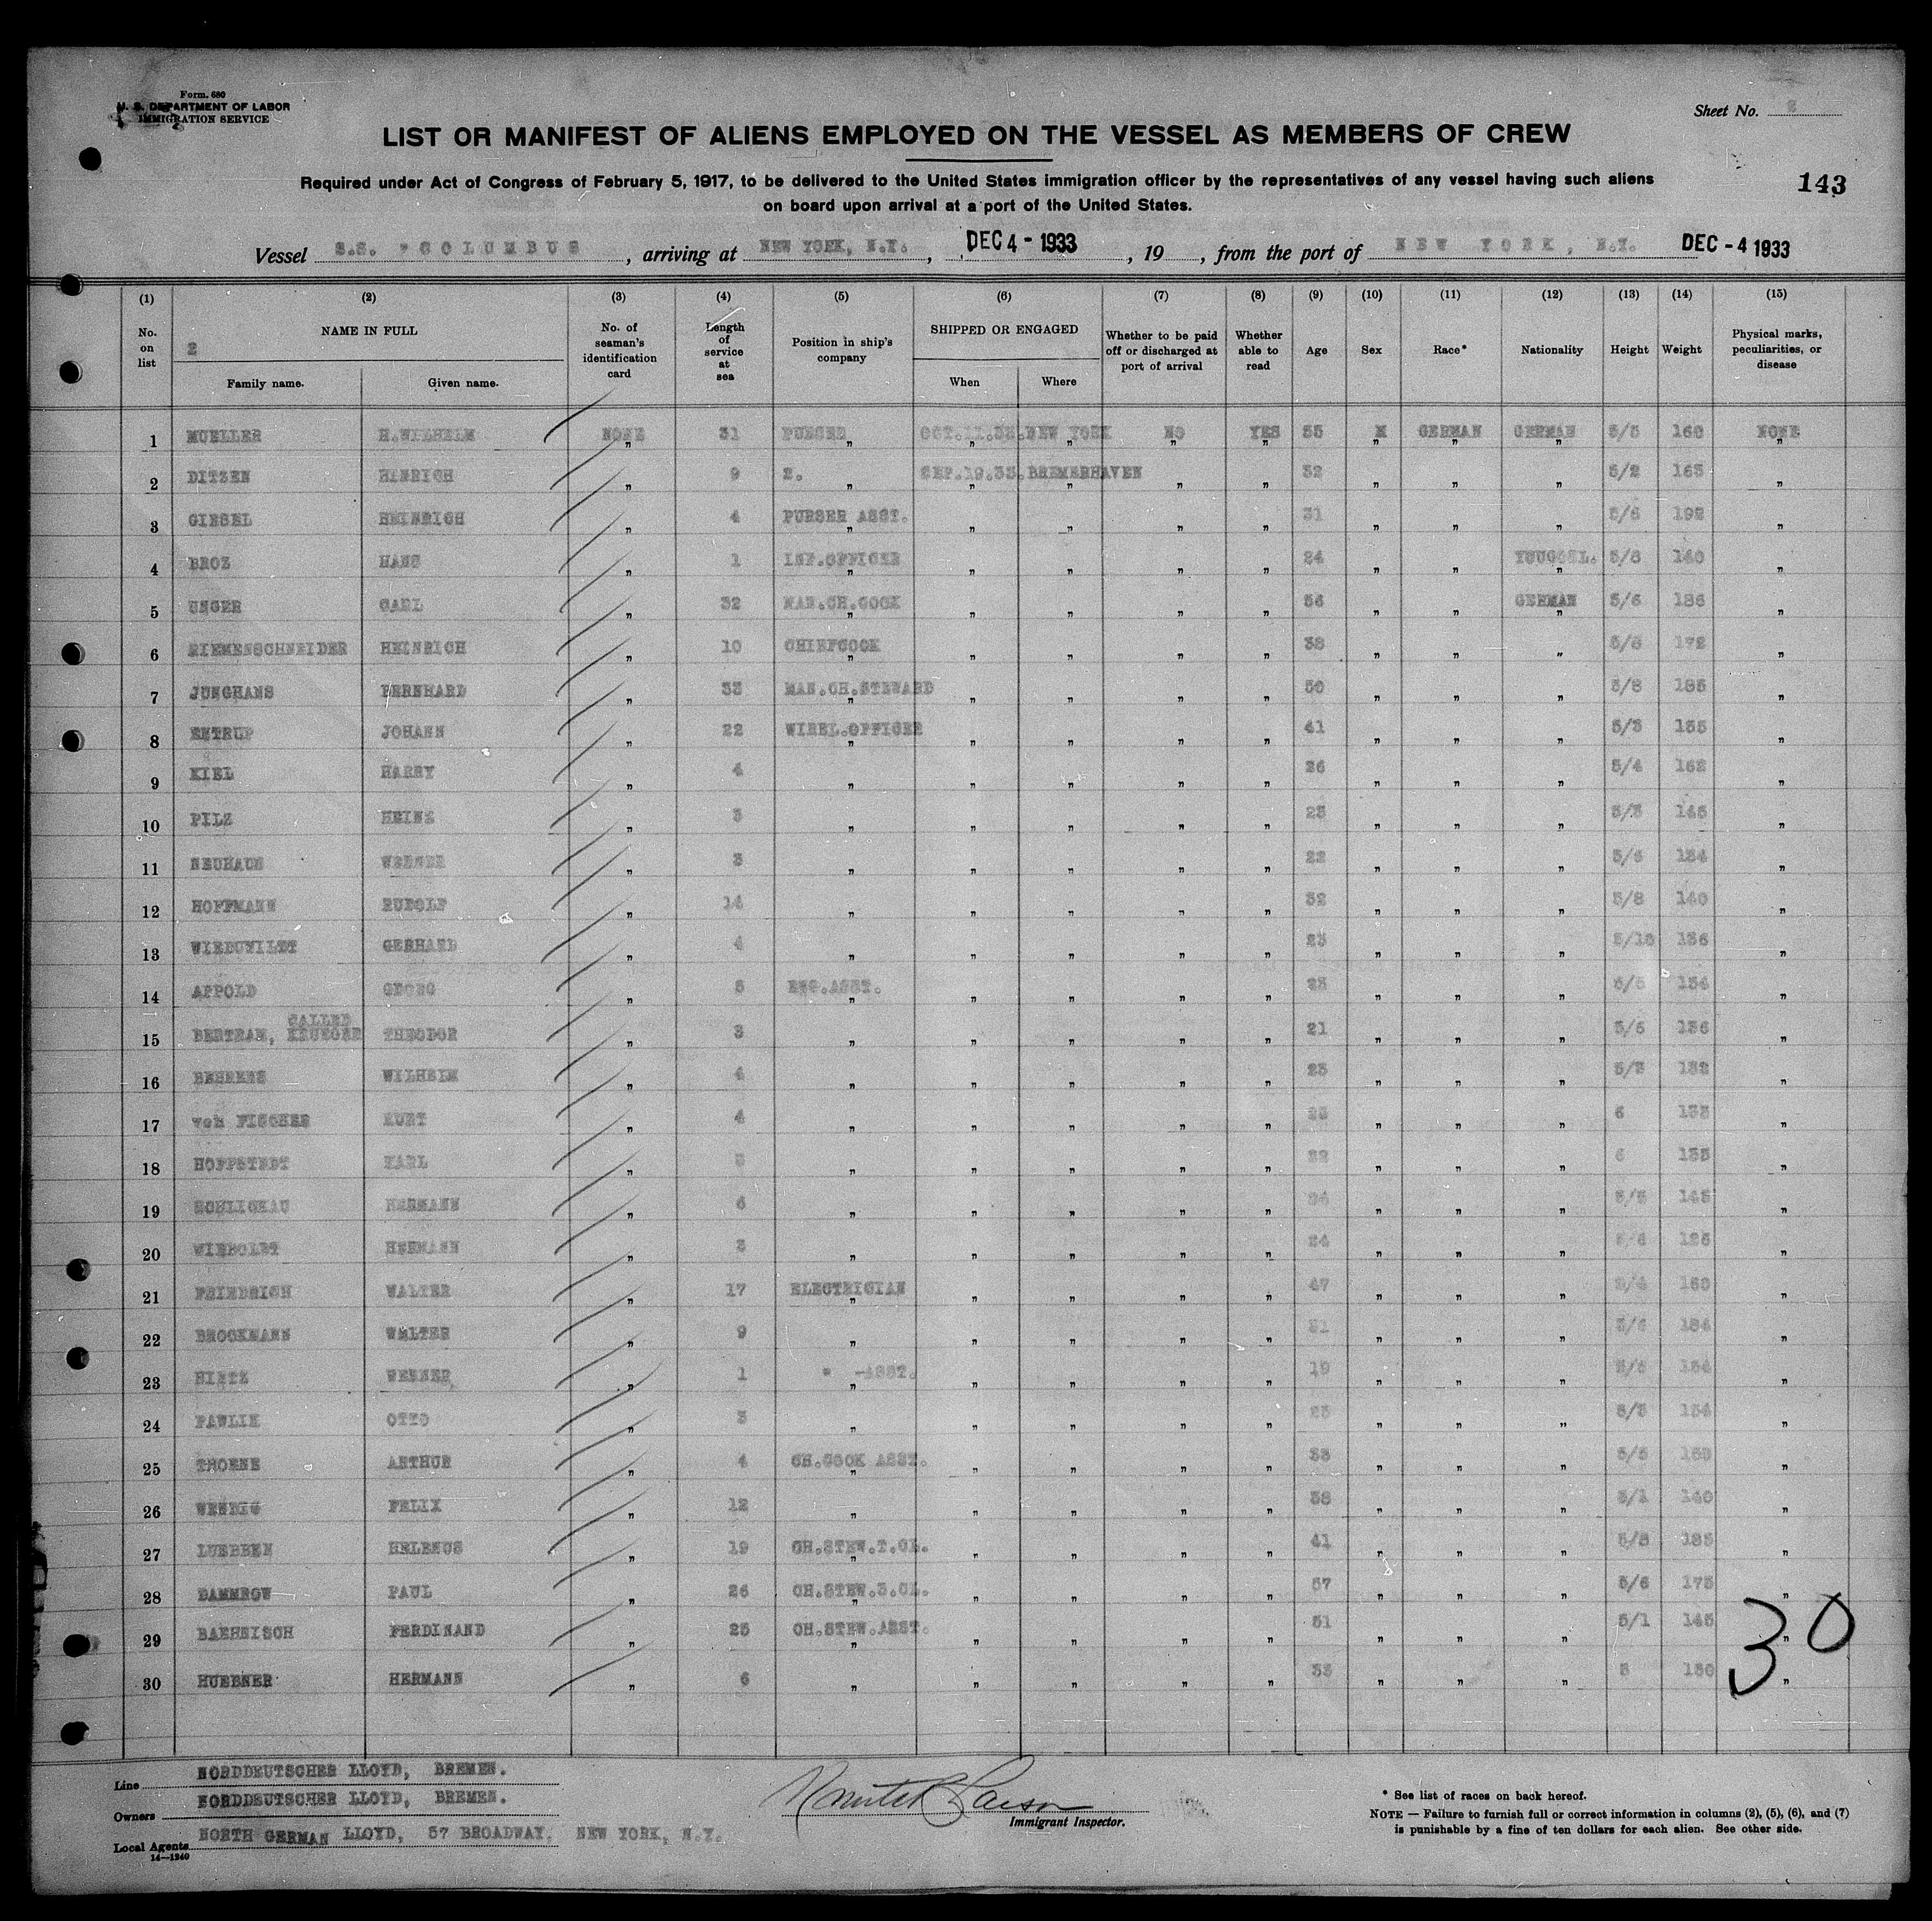 Form. 680
U. S. DEPARTMENT OF LABOR
IMMIGRATION SERVICE
Sheet No. 2
LIST OR MANIFEST OF ALIENS EMPLOYED ON THE VESSEL AS MEMBERS OF CREW
Required under Act of Congress of February 5, 1917, to be delivered to the United States immigration officer by the representatives of any vessel having such aliens
on board upon arrival at a port of the United States.
143
Vessel S.S. "COLUMBUS , arriving at NEW YORK, N.Y. , DEC 4 - 1933 , 19 , from the port of NEW YORK, N.Y. DEC - 4 1933
(1) (2) (3) (4) (5) (6) (7) (8) (9) (10) (11) (12) (13) (14) (15)
No. on list NAME IN FULL No. of seaman's identification card Length of service at sea Position in ship's company SHIPPED OR ENGAGED Whether to be paid off or discharged at port of arrival Whether able to read Age Sex Race* Nationality Height Weight Physical marks, peculiarities, or disease
2
Family name. Given name. When Where
1 MUELLER H.WILHELM NONE 31 PURSER NEW YORK NO YES 55 M GERMAN GERMAN 5/5 160 NONE
2 DITZEN HINRICH " 9 2. " SEP.19.33. BREMERHAVEN " " 32 " " " 5/2 163 "
3 GIESEL HEINRICH " 4 PURSER ASST. " " " " 31 " " " 5/6 192 "
4 BROZ HANS " 1 INF.OFFICER " " " " 24 " " YOUGOSL. 5/8 140 "
5 UNGER CARL " 32 MAN.CH.COOK " " " " 56 " " GERMAN 5/6 186 "
6 RIEMENSCHNEIDER HEINRICH " 10 CHIEFCOOK " " " " 38 " " " 172 "
7 JUNGHANS BERNHARD " 33 MAN.CH.STEWARD " " " " 50 " " " 5/8 185 "
8 ENTRUP JOHANN " 22 WIREL.OFFICER " " " " 41 " " " 5/3 "
9 KIEL HARRY " 4 " " " " " 26 " " " 5/4 162 "
10 PILZ HEINZ " 3 " " " " " 25 " " " 145 "
11 NEUHAUS WERNER " 3 " " " " " 22 " " " 134 "
12 HOFFMANN RUDOLF " 14 " " " " " 32 " " " 5/8 140 "
13 GERHARD " 4 " " " " " 23 " " " 5/10 136 "
14 APPOLD GEORG " ENG.ASST. " " " " " " " "
15 BERTRAM, CALLED KRUEGER THEODOR " 3 " " " " " 21 " " " 136 "
16 BEHRENS WILHELM " 4 " " " " " 23 " " " 132 "
17 von FISCHER KURT " 4 " " " " " " " " 6 "
18 HOFFSTEDT KARL " " " " " " 22 " " " 6 "
19 SCHLICHAU HERMANN " 6 " " " " " " " " 145 "
20 WIEBOLDT HERMANN " 3 " " " " " 24 " " " "
21 FRIEDRICH WALTER " 17 ELECTRICIAN " " " " 47 " " " 160 "
22 BROCKMANN WALTER " 9 " " " " " 31 " " " "
23 HINTZ WERNER " 1 " -ASST. " " " " 19 " " " "
24 PAWLIK OTTO " 3 " " " " " " " " "
25 THOENE ARTHUR " 4 CH.COOK ASST. " " " " 33 " " " "
26 FELIX " 12 " " " " " 38 " " " 5/1 140 "
27 LUEBBEN HELENUS " 19 CH.STEW.T.CL. " " " " 41 " " " 5/8 185 "
28 DAMMROW PAUL " 26 CH.STEW.3.CL. " " " " 57 " " " 5/6 175 "
29 BAEHNISCH FERDINAND " 25 CH.STEW.ASST. " " " " 51 " " " 5/1 145 "
30 HUEBNER HERMANN " 6 " " " " " 33 " " " 5 130 "
30
Line NORDDEUTSCHER LLOYD, BREMEN.
Owners NORDDEUTSCHER LLOYD, BREMEN.
Local Agents NORTH GERMAN LLOYD, 57 BROADWAY. NEW YORK, N.Y.
14—1240
Immigrant Inspector.
* See list of races on back hereof.
NOTE — Failure to furnish full or correct information in columns (2), (5), (6), and (7)
is punishable by a fine of ten dollars for each alien. See other side.